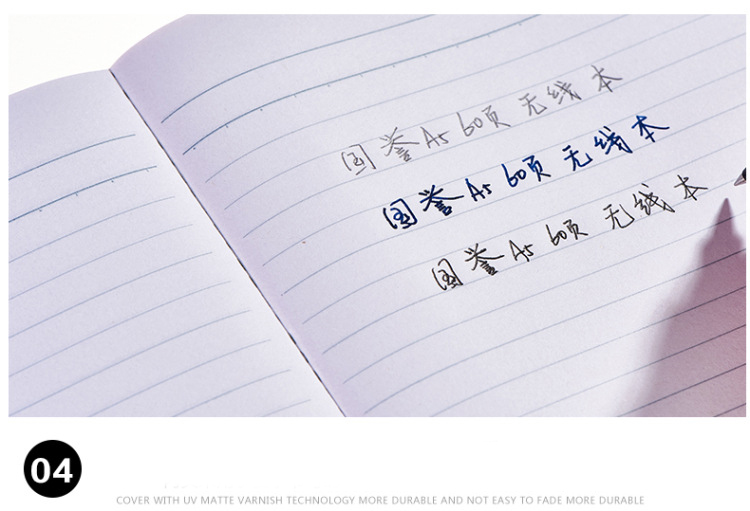 国誉 A5 60页 无线本
国誉 A5 60页 无线本
国誉 A5 60页 无线本
04
COVER WITH UV MATTE VARNISH TECHNOLOGY MORE DURABLE AND NOT EASY TO FADE MORE DURABLE